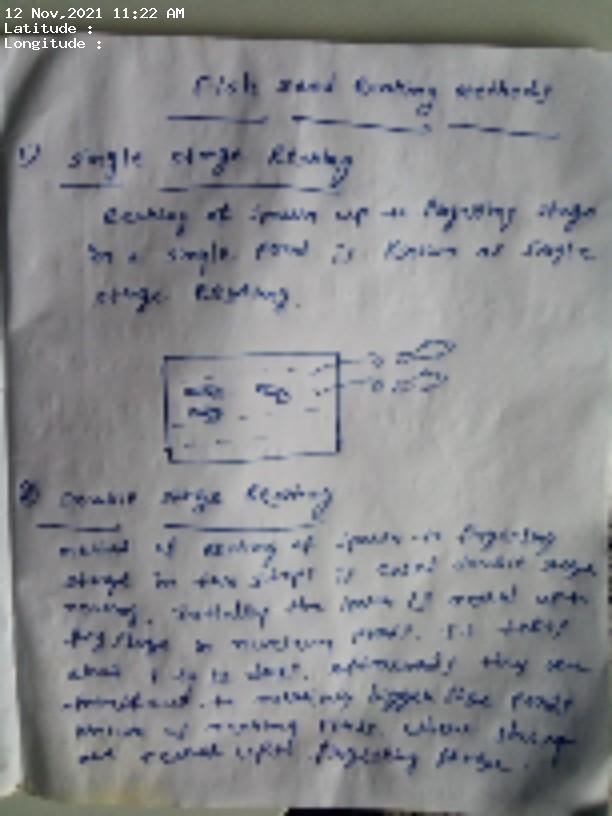 12 Nov,2021 11:22 AM
Latitude :
Longitude :
Fish seed Rearing methods
1) Single stage Rearing
Rearing of spawn up to fingerling stage
in a single pond is known as single
stage Rearing.
2) Double stage Rearing
method of rearing of spawn to fingerling
stage in two steps is called double stage
rearing. Initially the spawn is reared upto
fry stage in nursery ponds. It takes
about to 15 days. afterwards they are
to bigger size ponds
known as rearing ponds. where
are reared upto fingerling stage.